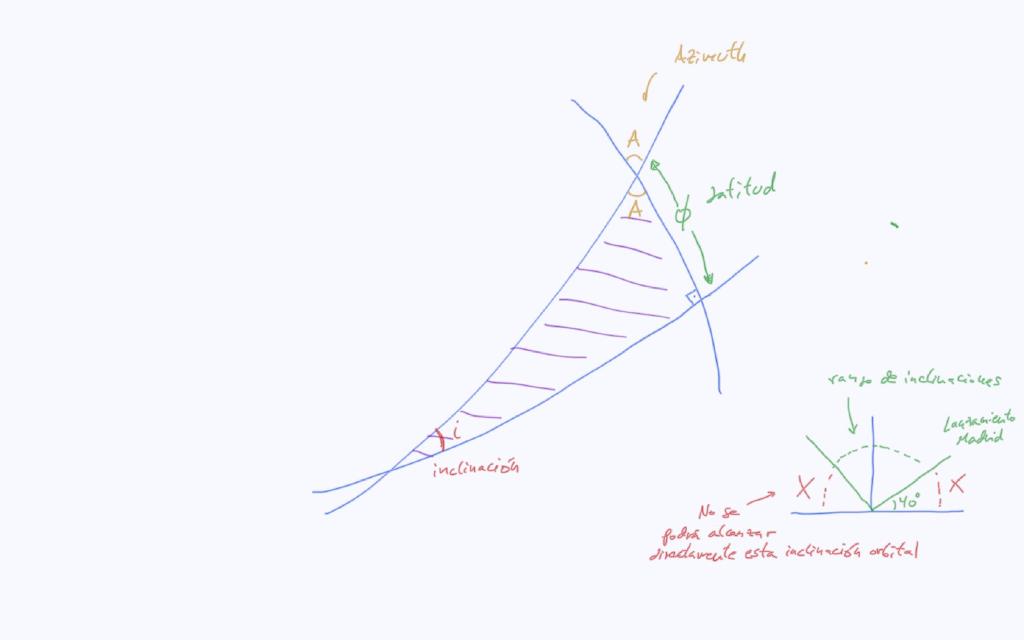 Azimuth
A
A
ϕ
Latitud
i
inclinación
rango de inclinaciones
Lanzamiento
Madrid
X
40°
X
No se
podrá alcanzar
directamente esta inclinación orbital